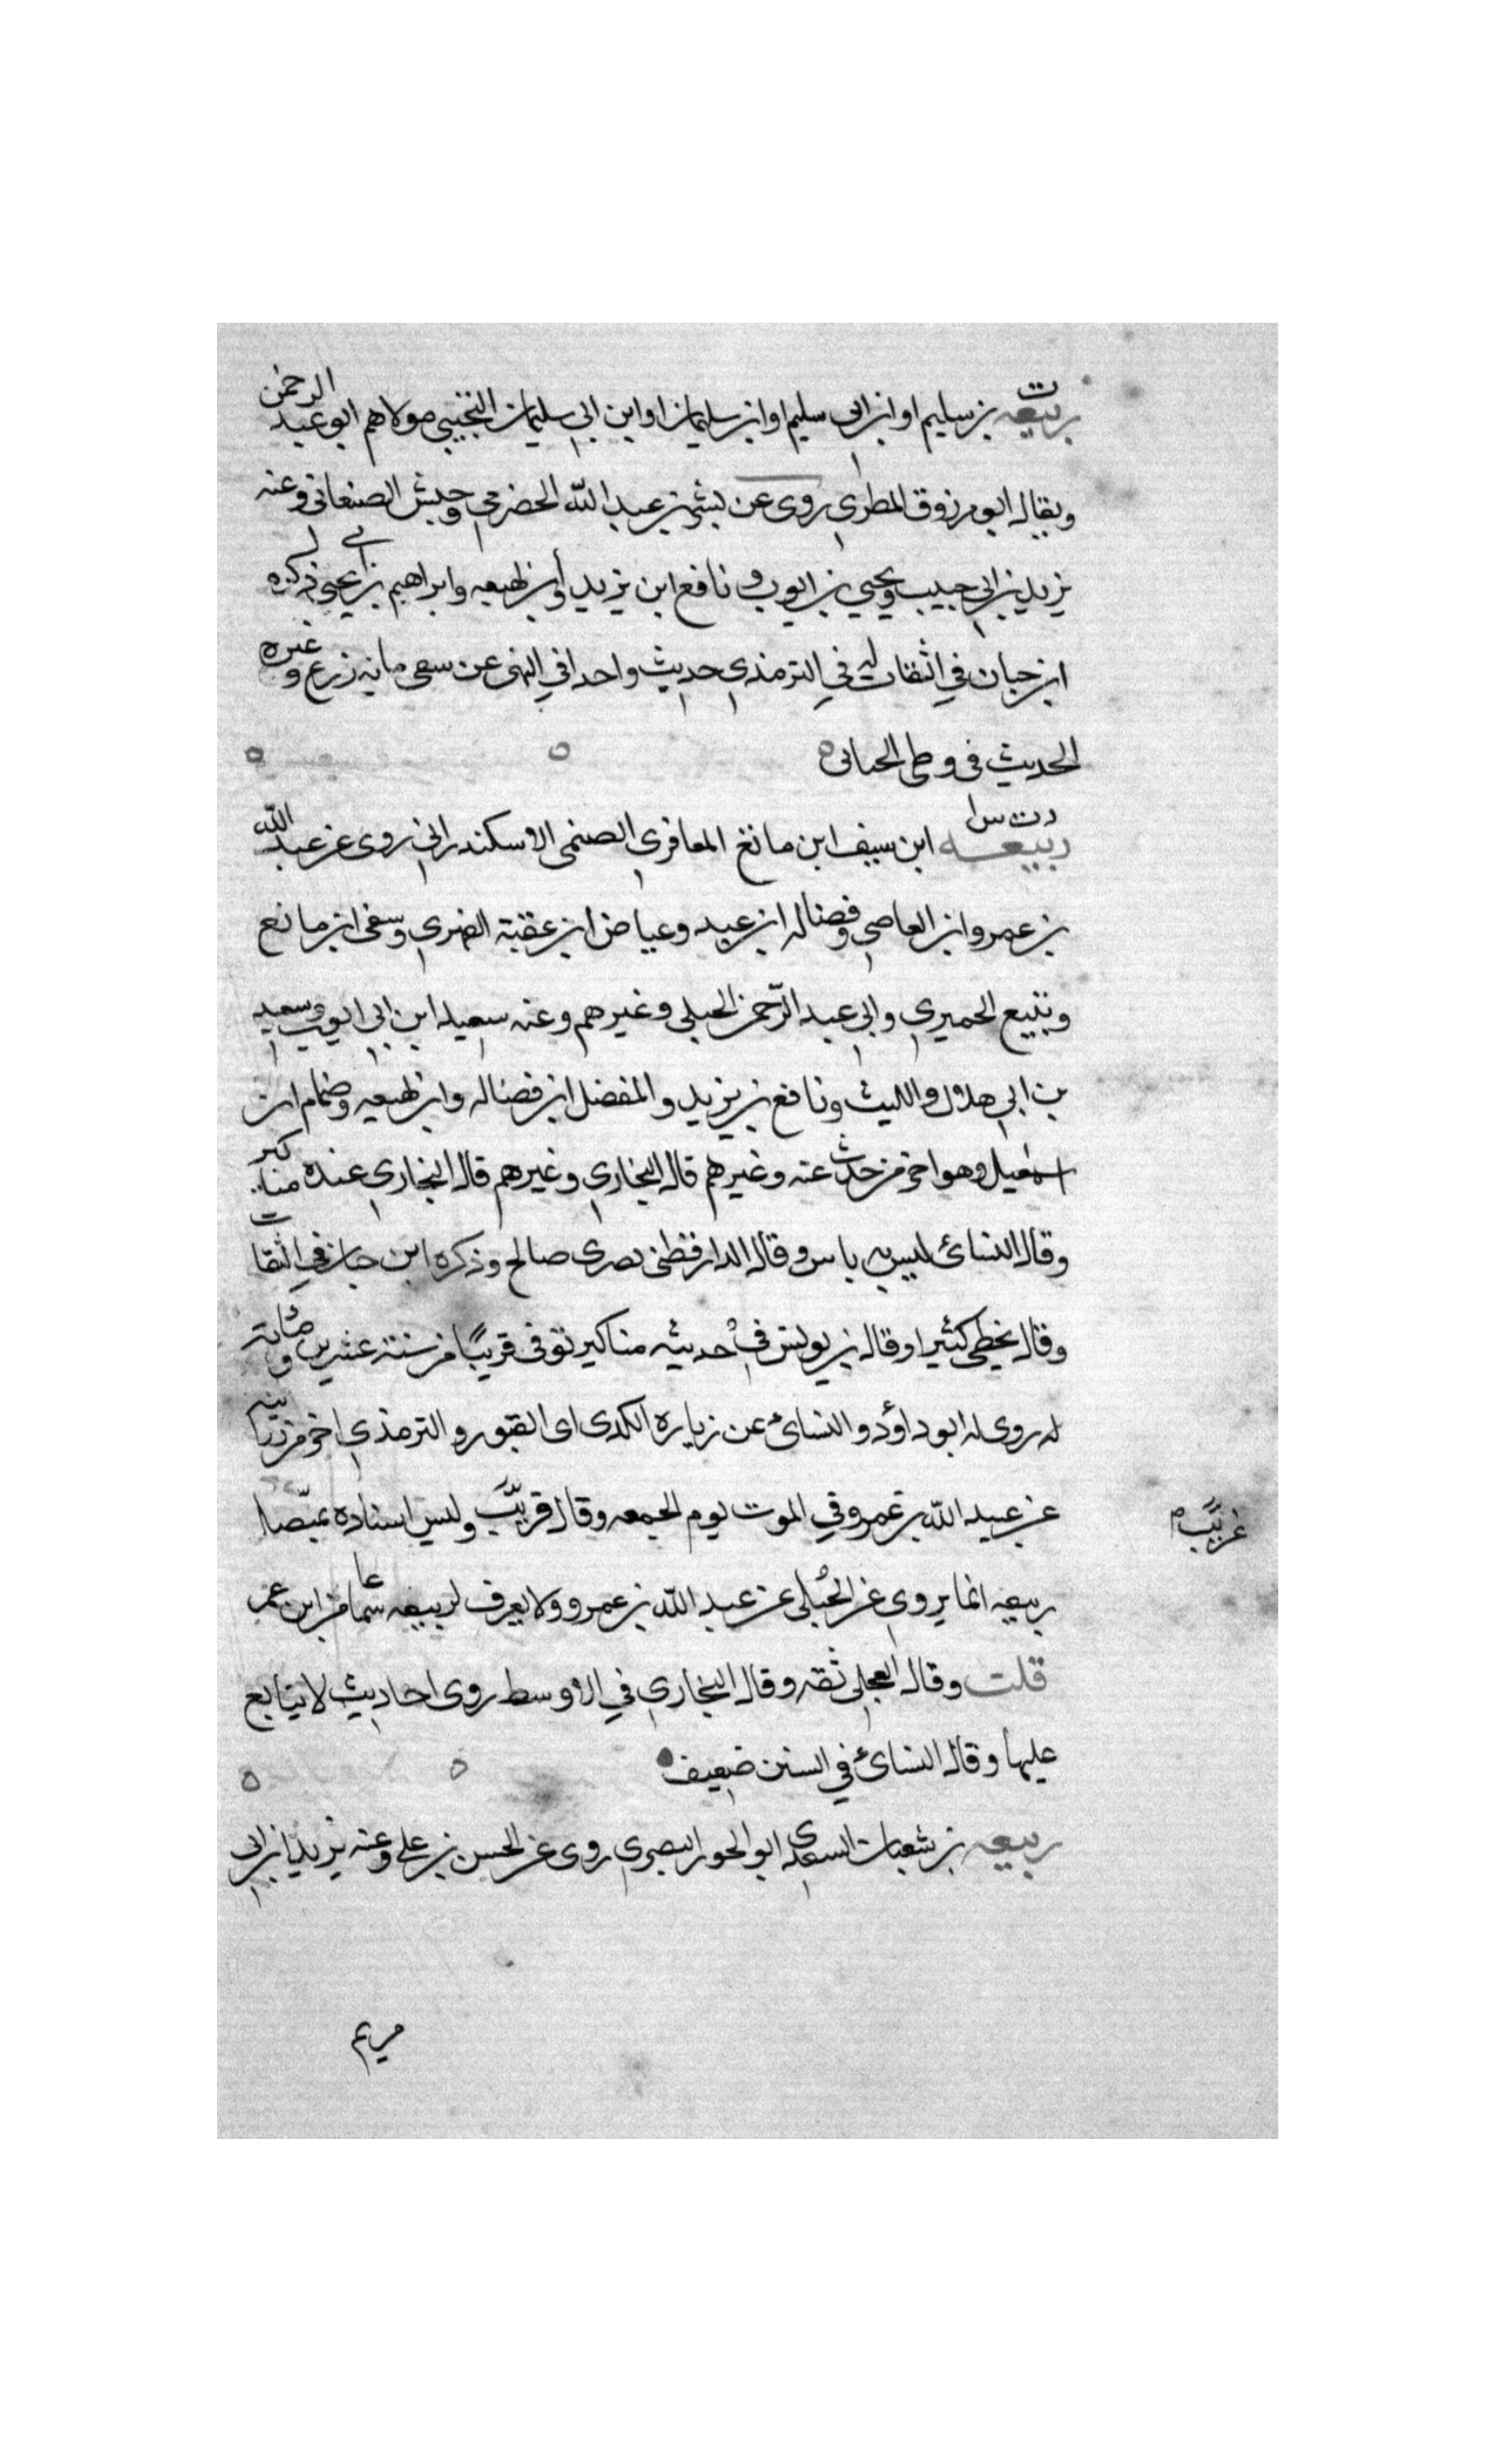 ت
ربيعه بن سليم او ابن ابي سليم او ابن سليمان او ابن ابي سليمان التجيبي مولاهم ابو عبد الرحمن
ويقال ابو مرزوق المطري روى عن بشر بن عبد الله الحضرمي وحبش الصنعاني وعنه
يزيد بن ابي حبيب ويحيي بن ايوب ونافع ابن يزيد وابن لهيعه وابراهيم بن يحيى ذكره
ابن حبان في الثقات له في الترمذي حديث واحد افي النهى عن سعى مايه زرع وغيره
الحديث في وطى الحبالى ه
دت س
ربيعه ابن سيف ابن مانع المعافري الصنمى الاسكندراني روى عن عبد الله
بن عمرو ابن العاصي وفضاله ابن عبيد وعياض ابن عقبة الفهري وسفى ابن مانع
وتبيع الحميري وابي عبد الرحمن الحبلى وغيرهم وعنه سعيد ابن ابي ايوب وسعيد
بن ابي هلال والليث ونافع بن يزيد والمفضل ابن فضاله وابن لهيعه وضمام ابن
اسمعيل وهو اخر من حدث عنه وغيرهم قال البخاري وغيرهم قال البخاري عنده مناكير
وقال النسائ ليس به باس وقال الدارقطنى مصرى صالح وذكره ابن حبان في الثقات
وقال يخطى كثيرا وقال بن يونس في حديثه مناكير توفى قريبًا من سنة عشرين ومائة
له روى له ابو داؤد والنسائ عن زياره الكدى اى القبور والترمذي اخر من روايته
عن عبيد الله بن عمرو في الموت يوم الجمعه وقال قريب وليس اسناده بمتصل
غريب م
ربيعه انما يروي عن الحُبلى عن عبد الله بن عمرو ولا يعرف لربيعه سماعا من ابن عمر
قلت وقال العجلى ثقه وقال البخاري في الاوسط روى احاديث لا يتابع
عليها وقال النسائ في السنن ضعيف
ربيعه بن شعبان السعدى ابو الحور البصري روى عن الحسن بن على وعنه يزيد ابن ابي
مريم